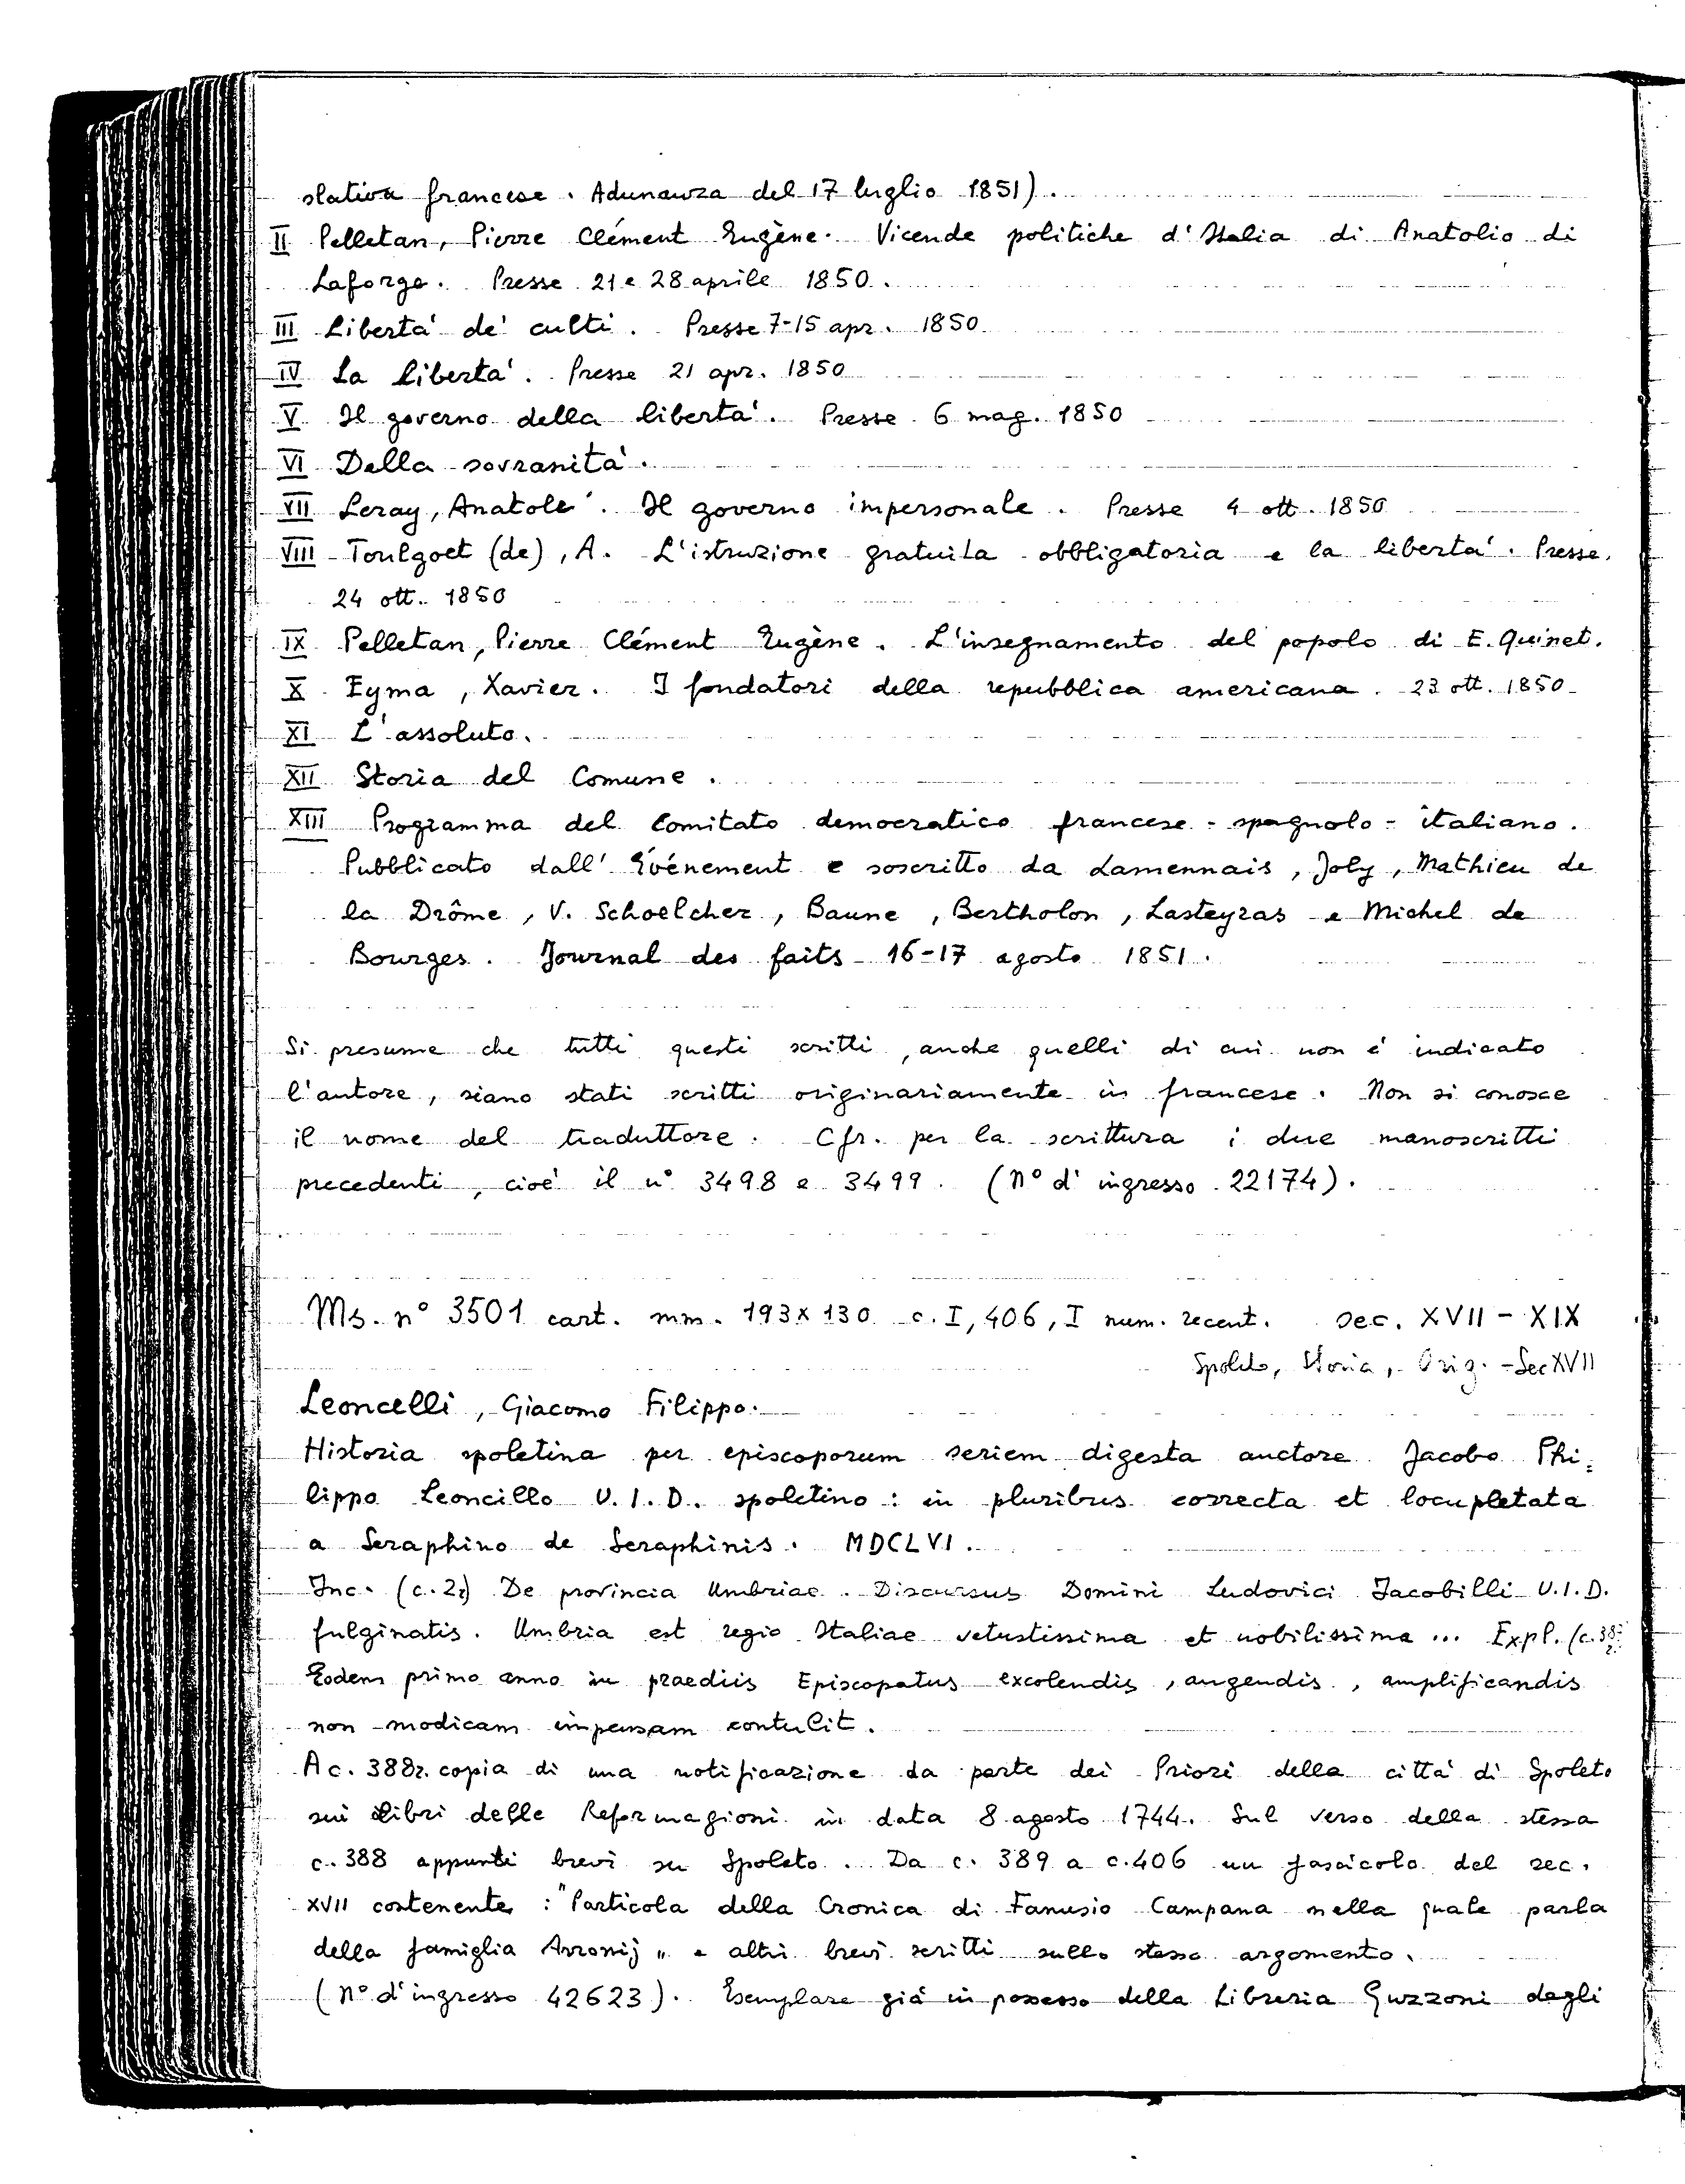 slativa francese. Adunanza del 17 luglio 1851).
II Pelletan, Pierre Clément Eugène. Vicende politiche d'Italia di Anatolio di
Laforge. Presse 21 e 28 aprile 1850.
III Liberta' de' culti. Presse 7-15 apr. 1850
IV La liberta'. Presse 21 apr. 1850
V Il governo della liberta'. Presse 6 mag. 1850
VI Della sovranita'.
VII Leray, Anatole. Il governo impersonale. Presse 4 ott. 1850
VIII Toulgoet (de), A. L'istruzione gratuita obbligatoria e la liberta'. Presse.
24 ott. 1850
IX Pelletan, Pierre Clément Eugène. L'insegnamento del popolo di E. Quinet.
X Eyma, Xavier. I fondatori della repubblica americana. 23 ott. 1850
XI L'assoluto.
XII Storia del Comune.
XIII Programma del Comitato democratico francese-spagnolo-italiano.
Pubblicato dall' Événement e soscritto da Lamennais, Joly, Mathieu de
la Drôme, V. Schoelcher, Baune, Bertholon, Lasteyras e Michel de
Bourges. Journal des faits 16-17 agosto 1851.
Si presume che tutti questi scritti, anche quelli di cui non é indicato
l'autore, siano stati scritti originariamente in francese. Non si conosce
il nome del traduttore. Cfr. per la scrittura i due manoscritti
precedenti, cioé il n° 3498 e 3499. (N° d'ingresso 22174).
Ms. n° 3501 cart. mm. 193x130 c. I, 406, I num. recent. sec. XVII - XIX
Spoleto, Storia, - Orig. - Sec XVII
Leoncelli, Giacomo Filippo.
Historia spoletina per episcoporum seriem digesta auctore Jacobo Phi=
lippo Leoncillo U.I.D. spoletino: in pluribus correcta et locupletata
a Seraphino de Seraphinis. MDCLVI.
Inc. (c. 2r) De provincia Umbriae. Discursus Domini Ludovici Jacobilli U.I.D.
fulginatis. Umbria est regio Italiae vetustissima et nobilissima ... Expl. (c.
Eodem primo anno in praediis Episcopatus excolendis, augendis, amplificandis
non modicam impensam contulit.
A c. 388r. copia di una notificazione da parte dei Priori della cittá di Spoleto
sui libri delle Reformagioni in data 8 agosto 1744. Sul verso della stessa
c. 388 appunti brevi su Spoleto. Da c. 389 a c. 406 un fascicolo del sec.
XVII contenente: "Particola della Cronica di Fanusio Campana nella quale parla
della famiglia Arronij" e altri brevi scritti sullo stesso argomento.
(N° d'ingresso 42623). Esemplare giá in possesso della Libreria Guzzoni degli